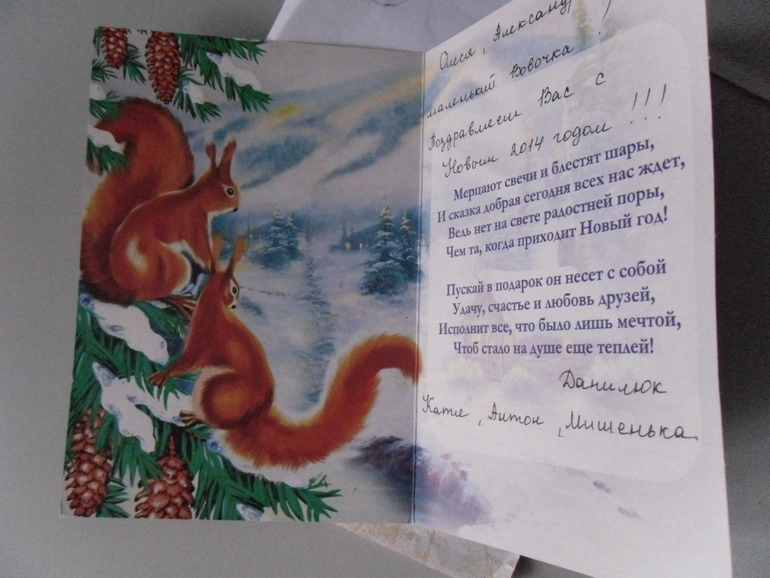 Олеся, Александр
маленький Вовочка !
Поздравляем Вас с
Новым 2014 годом !!!
Мерцают свечи и блестят шары,
И сказка добрая сегодня всех нас ждет,
Ведь нет на свете радостней поры,
Чем та, когда приходит Новый год!
Пускай в подарок он несет с собой
Удачу, счастье и любовь друзей,
Исполнит все, что было лишь мечтой,
Чтоб стало на душе еще теплей!
Данилюк
Катя, Антон, Мишенька